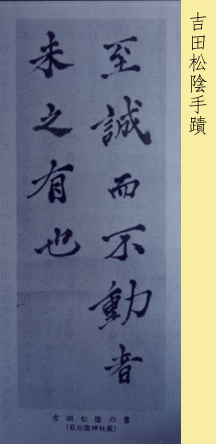 吉田松陰手蹟
至誠而不動者
未之有也
吉田松陰の書
(萩松陰神社蔵)